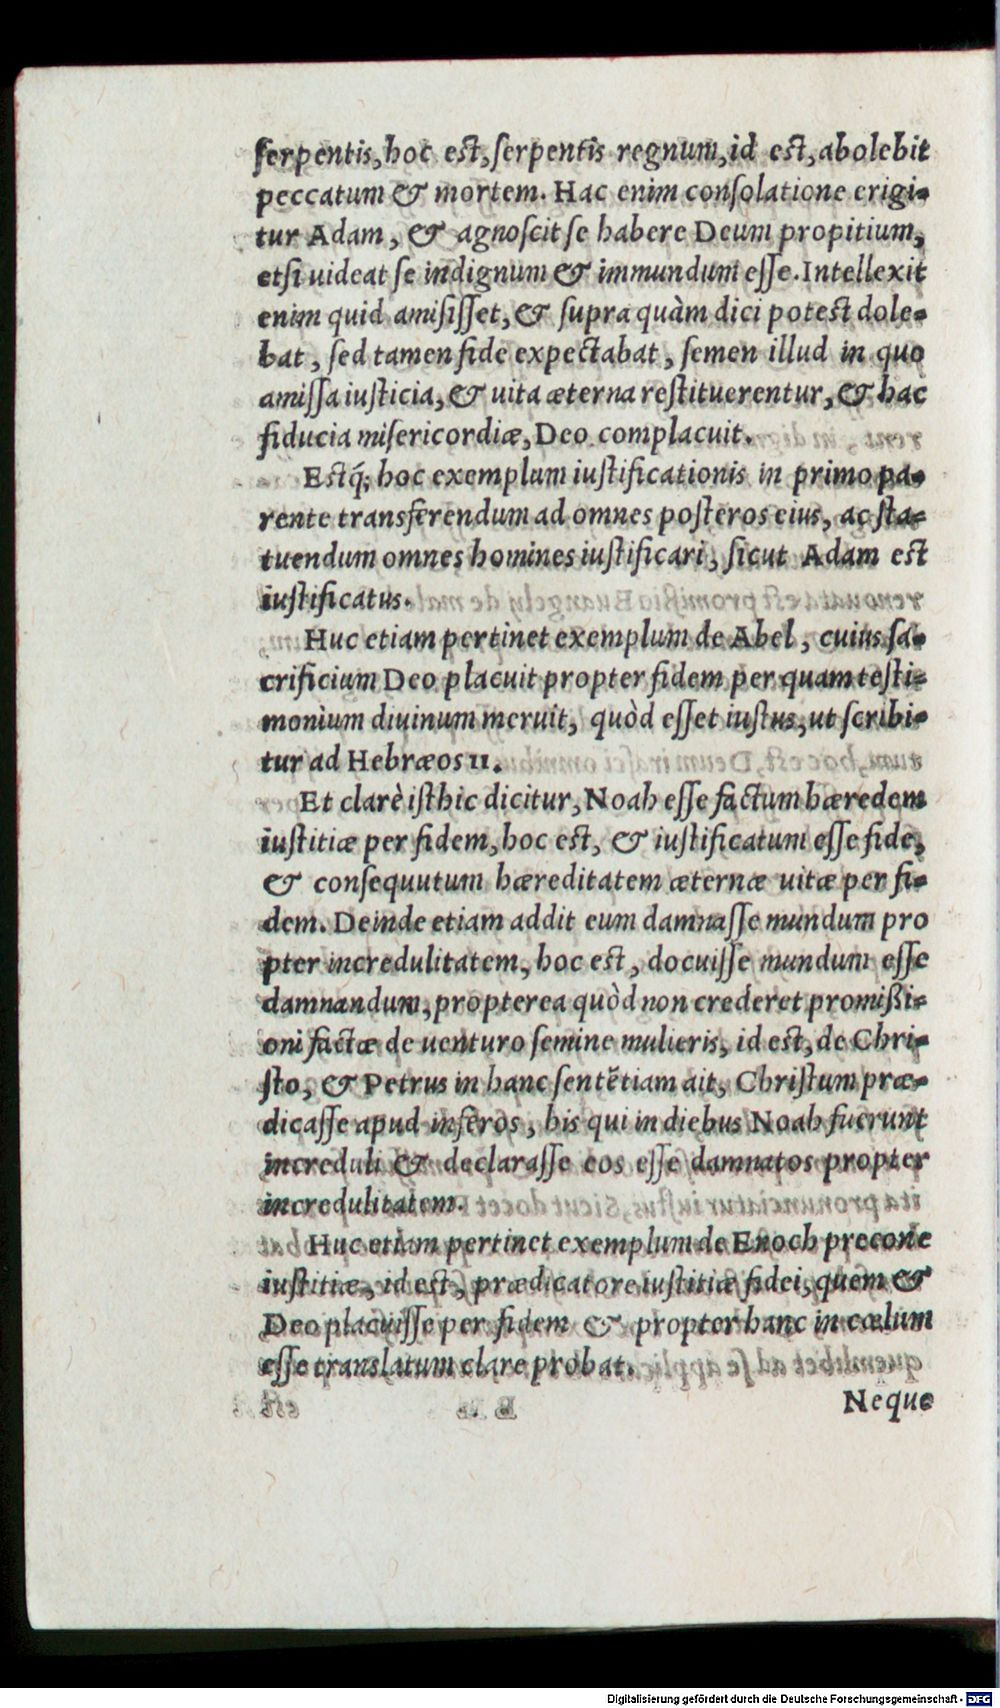 ſerpentis, hoc est, ſerpentis regnum, id est, abolebit
peccatum & mortem. Hac enim conſolatione erigi-
tur Adam, & agnoſcit ſe habere Deum propitium,
etſi uideat ſe indignum & immundum eſſe. Intellexit
enim quid amiſiſſet, & ſupra quàm dici potest dole-
bat, ſed tamen fide expectabat, ſemen illud in quo
amiſſa iuſticia, & uita æterna reſtituerentur, & hac
fiducia miſericordiæ, Deo complacuit.
Estq́; hoc exemplum iuſtificationis in primo pa-
rente transferendum ad omnes poſteros eius, ac ſta-
tuendum omnes homines iuſtificari, ſicut Adam est
iuſtificatus.
Huc etiam pertinet exemplum de Abel, cuius ſa-
crificium Deo placuit propter fidem per quam teſti-
monium diuinum meruit, quòd eſſet iuſtus, ut ſcribi-
tur ad Hebræos 11.
Et clarè iſthic dicitur, Noah eſſe factum hæredem
iuſtitiæ per fidem, hoc est, & iuſtificatum eſſe fide,
& conſequutum hæreditatem æternæ uitæ per fi-
dem. Deinde etiam addit eum damnaſſe mundum pro
pter incredulitatem, hoc est, docuiſſe mundum eſſe
damnandum, propterea quòd non crederet promißi-
oni factæ de uenturo ſemine mulieris, id est, de Chri-
ſto, & Petrus in hanc ſentẽtiam ait, Chriſtum præ-
dicaſſe apud inferos, his qui in diebus Noah fuerunt
increduli & declaraſſe eos eſſe damnatos propter
incredulitatem.
Huc etiam pertinet exemplum de Enoch precone
iuſtitiæ, id est, prædicatore iuſtitiæ fidei, quem &
Deo placuiſſe per fidem & propter hanc in cœlum
eſſe translatum clare probat.
Neque
Digitalisierung gefördert durch die Deutsche Forschungsgemeinschaft - DFG